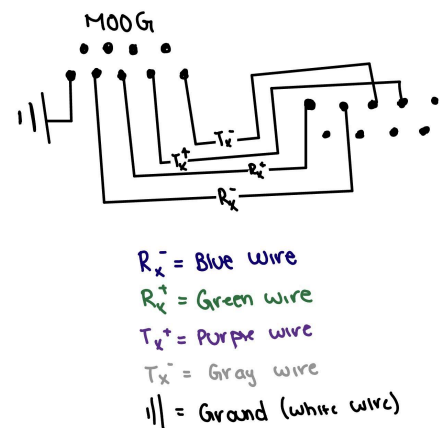 MOOG
Tx-
Tx+
Rx+
Rx-
Rx- = Blue wire
Rx+ = Green wire
Tx+ = Purple wire
Tx- = Gray wire
= Ground (white wire)